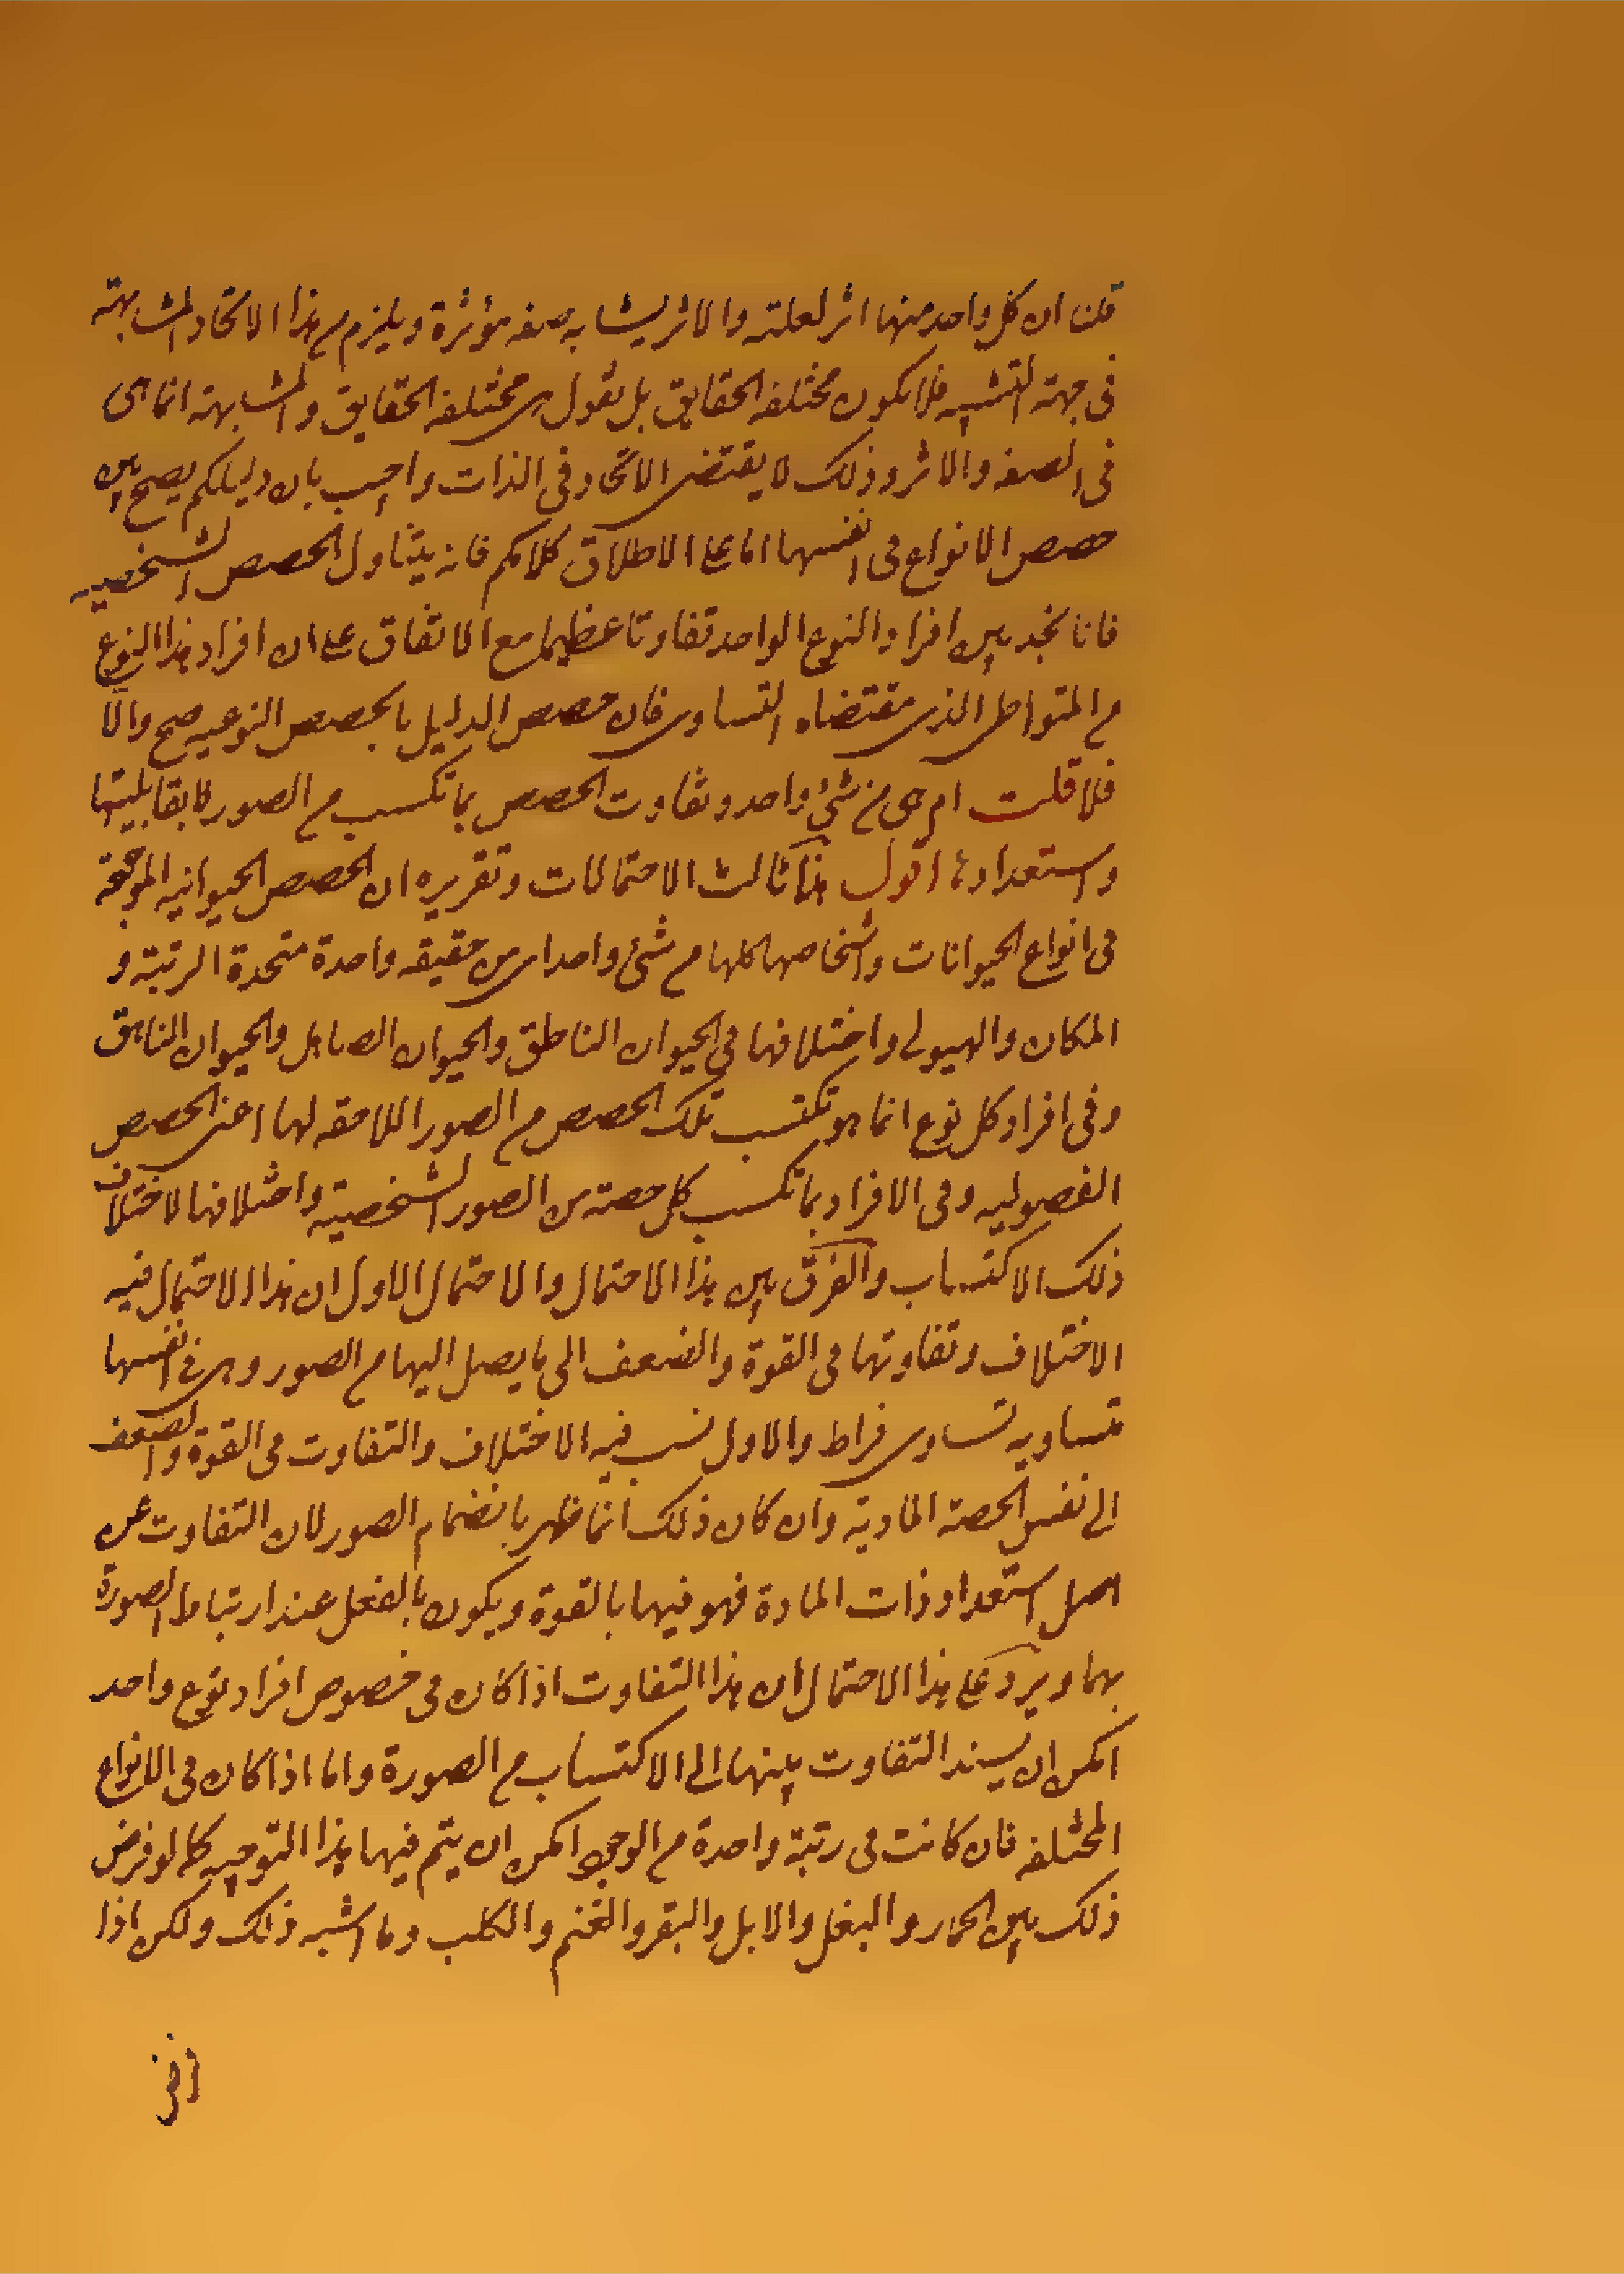 قلنا ان كل واحد منها اثر لعلته والاثر يشابه صفه مؤثرة ويلزم من هذا الاتحاد المشابهته
فى جهته التشبيه فلا يكون مختلفه الحقايق بل نقول هى مختلفه الحقايق والمشابهته انما هى
فى الصفه والاثر وذلك لا يقتضى الاتحاد فى الذات واجيب بان دليلكم يصح بين
حصص الانواع فى انفسها اما على الاطلاق كلامكم فانه يتناول الحصص الشخصيه
فانا نجد بين افراد النوع الواحد تفاوتا عظيما مع الاتفاق على ان افراد هذا النوع
من المتواطى الذى مقتضاه التساوى فان حصص الدليل بالحصص النوعيه صح والّا
فلا قلت ام هى من شئ واحد وتفاوت الحصص بما تكسب من الصور لا بقابليتها
واستعدادها اقول هذا ثالث الاحتمالات وتقريره ان الحصص الحيوانيه الموجوة
فى انواع الحيوانات واشخاصها كلها من شئ واحد اى من حقيقه واحدة متحدة الرتبة و
المكان والهيولى واختلافها فى الحيوان الناطق والحيوان الصاهل والحيوان الناهق
وفى افراد كل نوع انما هو تكتسب تلك الحصص من الصور اللاحقه لها اعنى الحصص
الفصوليه وفى الافراد بما تكسب كل حصته من الصور الشخصيته واختلافها لاختلاف
ذلك الاكتساب والفرق بين هذا الاحتمال والاحتمال الاول ان هذا الاحتمال فيه
الاختلاف وتفاوتها فى القوة والضعف الى ما يصل اليها من الصور وهى فى انفسها
متساويه تساوى فراط والاول نسب فيه الاختلاف والتفاوت فى القوة والضعف
الى نفس الحصته المادية وان كان ذلك انما ظهر بانضمام الصور لان التفاوت عن
اصل استعداد ذات المادة فهو فيها بالقوة ويكون بالفعل عند ارتباط الصورة
بها ويرد على هذا الاحتمال ان هذا التفاوت اذا كان فى خصوص افراد نوع واحد
امكن ان يسند التفاوت بينها الى الاكتساب من الصورة واما اذا كان فى الانواع
المختلفه فان كانت فى رتبة واحدة من الوجود امكن ان يتم فيها هذا التوجيه كما لو فرض
ذلك بين الحمار والبغل والابل والبقر والغنم والكلب وما اشبه ذلك ولكن اذا